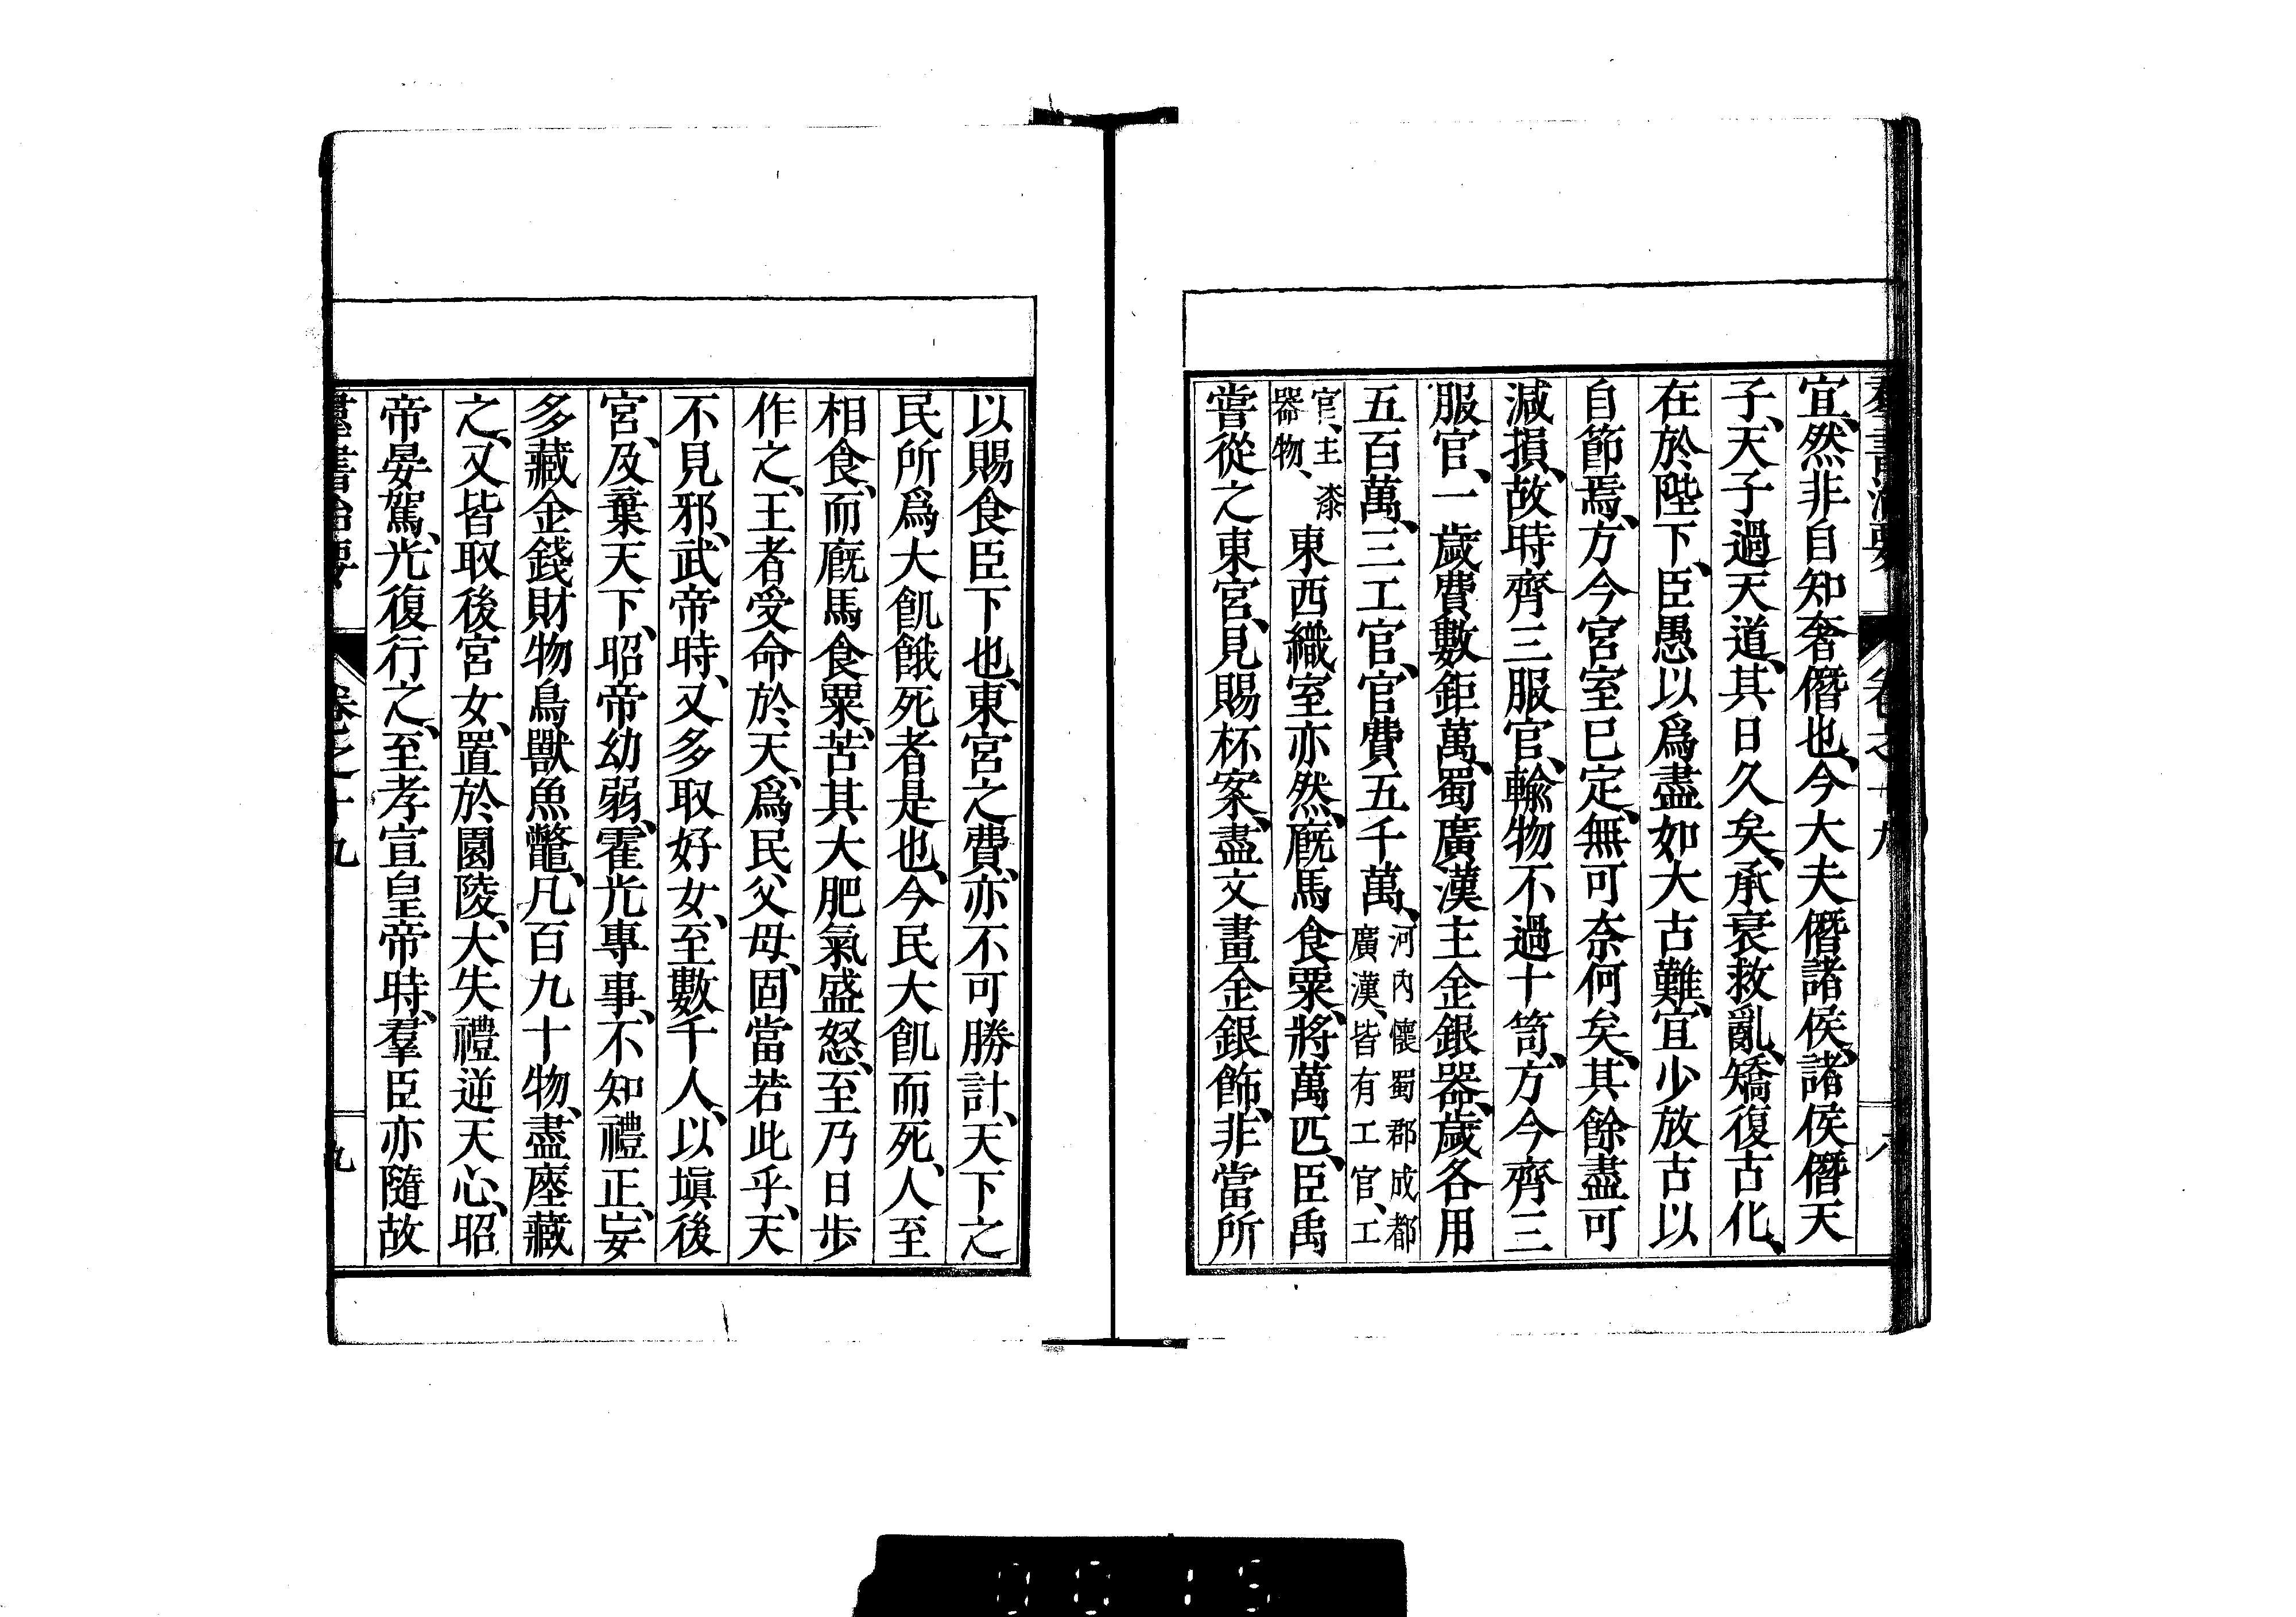 羣書治要 卷之十九 八
宜、然非自知奢僭也、今大夫僭諸侯、諸侯僭天
子、天子過天道、其日久矣、承衰救亂、矯復古化、
在於陛下、臣愚以爲盡如大古難、宜少放古以
自節焉、方今宮室已定、無可奈何矣、其餘盡可
減損、故時齊三服官、輸物不過十笥、方今齊三
服官、一歲費數鉅萬、蜀廣漢主金銀器、歲各用
五百萬、三工官、官費五千萬、河內懷蜀郡成都
廣漢、皆有工官、工
官、主漆
器物、
東西織室亦然、廐馬食粟、將萬匹、臣禹
嘗從之東宮、見賜杯案、盡文畫金銀飾、非當所
以賜食臣下也、東宮之費、亦不可勝計、天下之
民所爲大飢餓死者是也、今民大飢而死、人至
相食、而廐馬食粟、苦其大肥氣盛怒、至乃日步
作之、王者受命於天、爲民父母、固當若此乎、天
不見邪、武帝時、又多取好女、至數千人、以塡後
宮、及棄天下、昭帝幼弱、霍光專事、不知禮正、妄
多藏金錢財物鳥獸魚鼈、凡百九十物、盡瘞藏
之、又皆取後宮女、置於園陵、大失禮逆天心、昭
帝晏駕、光復行之、至孝宣皇帝時、羣臣亦隨故
羣書治要 卷之十九 九